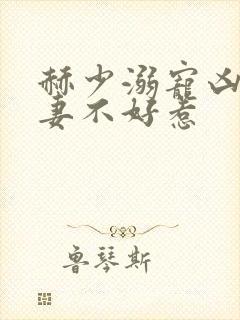 赫少溺寵凶
妻不好惹
魯琴斯